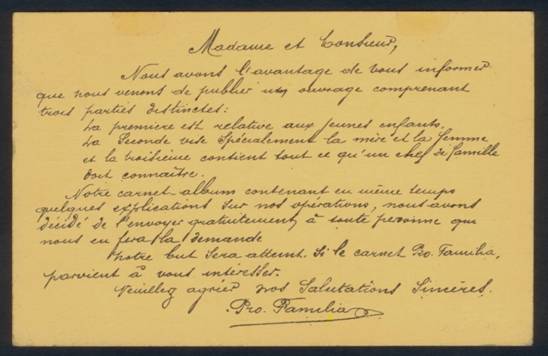 Madame et Monsieur,
Nous avons l'avantage de vous informer
que nous venons de publier un ouvrage comprenant
trois parties distinctes:
La première est relative aux jeunes enfants.
La Seconde vise Spécialement la mère et la femme
et la troisième contient tout ce qu'un chef de famille
doit connaître.
Notre carnet-album contenant en même temps
quelques explications sur nos opérations, nous avons
décidé de l'envoyer gratuitement à toute personne qui
nous en fera la demande
Notre but Sera atteint. Si le carnet Pro. Familia,
parvient à vous intéresser.
Veuillez agréer nos Salutations Sincères.
Pro. Familia